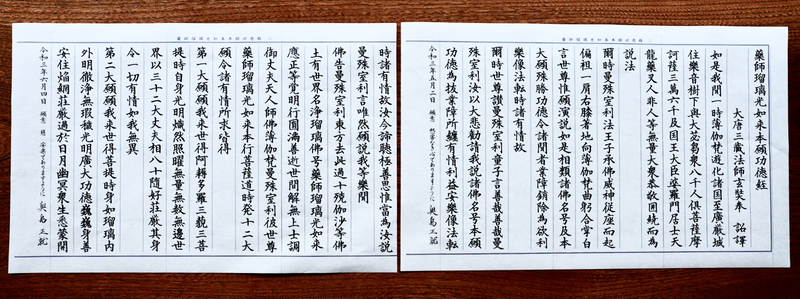 藥師瑠璃光如來本願功德經
大唐三藏法師玄奘奉 詔譯
如是我聞一時薄伽梵遊化諸国至廣嚴城
住樂音樹下與大苾芻衆八千人俱菩薩摩
訶薩三萬六千及国王大臣婆羅門居士天
龍藥叉人非人等無量大衆恭敬圍繞而為
説法
爾時曼殊室利法王子承佛威神從座而起
偏袒一肩右膝著地向薄伽梵曲躬合掌白
言世尊惟願演説如是相類諸佛名号及本
大願殊勝功德令諸聞者業障銷除為欲利
樂像法轉時諸有情故
爾時世尊讚曼殊室利童子言善哉善哉曼
殊室利汝以大悲勸請我説諸佛名号本願
功德為拔業障所纏有情利益安樂像法轉
令和三年五月二日
時諸有情故汝今諦聽極善思惟當為汝説
曼殊室利言唯然願説我等樂聞
佛告曼殊室利東方去此過十殑伽沙等佛
土有世界名淨瑠璃佛号藥師瑠璃光如來
應正等覺明行圓滿善逝世間解無上士調
御丈夫天人師佛薄伽梵曼殊室利彼世尊
藥師瑠璃光如來本行菩薩道時發十二大
願令諸有情所求皆得
第一大願願我來世得阿耨多羅三藐三菩
提時自身光明熾然照曜無量無数無邊世
界以三十二大丈夫相八十隨好莊嚴其身
令一切有情如我無異
第二大願願我來世得菩提時身如瑠璃内
外明徹淨無瑕穢光明廣大功德巍巍身善
安住焰網莊嚴過於日月幽冥衆生悉蒙開
令和三年六月四日